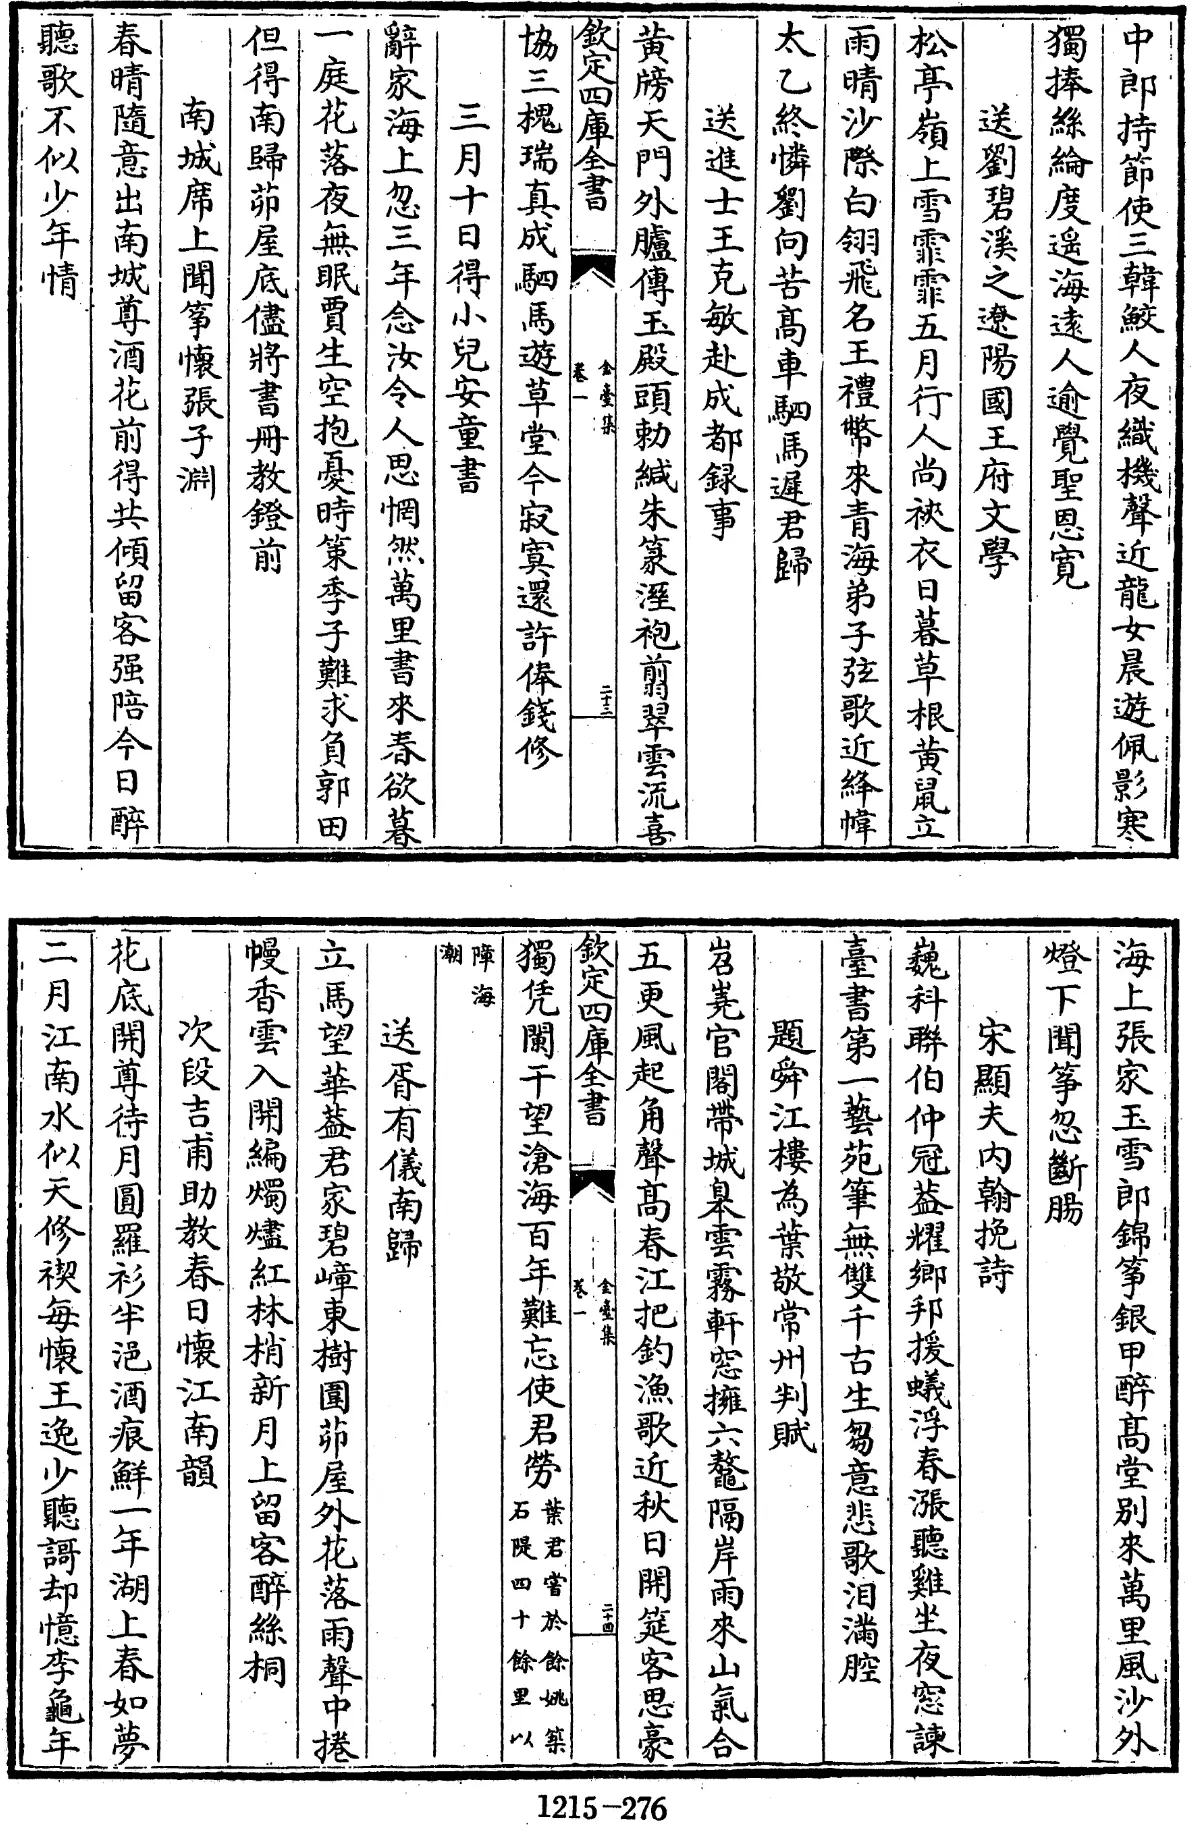 中郎持節使三韓鮫人夜織機聲近龍女晨遊佩影寒
獨捧絲綸度遥海遠人逾覺聖恩寛
送劉碧溪之遼陽國王府文學
松亭嶺上雪霏霏五月行人尚裌衣日暮草根黄鼠立
雨晴沙際白翎飛名王禮幣來青海弟子弦歌近絳幃
太乙終憐劉向苦髙車駟馬遲君歸
送進士王克敏赴成都録事
黄牓天門外臚傳玉殿頭勅緘朱篆溼袍翦翠雲流喜
欽定四庫全書
金臺集
卷一
二十三
協三槐瑞真成駟馬遊草堂今寂寞還許俸錢修
三月十日得小兒安童書
辭家海上忽三年念汝令人思惘然萬里書來春欲暮
一庭花落夜無眠賈生空抱憂時策季子難求負郭田
但得南歸茆屋底儘將書冊教鐙前
南城席上聞筝懷張子淵
春晴隨意出南城尊酒花前得共傾留客强陪今日醉
聽歌不似少年情
海上張家玉雪郎錦筝銀甲醉髙堂别來萬里風沙外
燈下聞筝忽斷腸
宋顯夫内翰挽詩
巍科聯伯仲冠葢耀鄉邦援蟻浮春漲聽雞坐夜窓諫
臺書第一藝苑筆無雙千古生芻意悲歌泪滿腔
題舜江樓為葉敬常州判賦
岧嶤官閣帶城皋雲霧軒窓擁六鼇隔岸雨來山氣合
五更風起角聲髙春江把釣漁歌近秋日開筵客思豪
欽定四庫全書
金臺集
卷一
二十四
獨凭闌干望滄海百年難忘使君勞
葉君嘗於餘姚築
石隄四十餘里以
障海
潮
送胥有儀南歸
立馬望華葢君家碧嶂東樹圍茆屋外花落雨聲中捲
幔香雲入開編燭燼紅林梢新月上留客醉絲桐
次段吉甫助教春日懷江南韻
花底開尊待月圓羅衫半浥酒痕鮮一年湖上春如夢
二月江南水似天修禊每懷王逸少聽謌却憶李龜年
1215-276